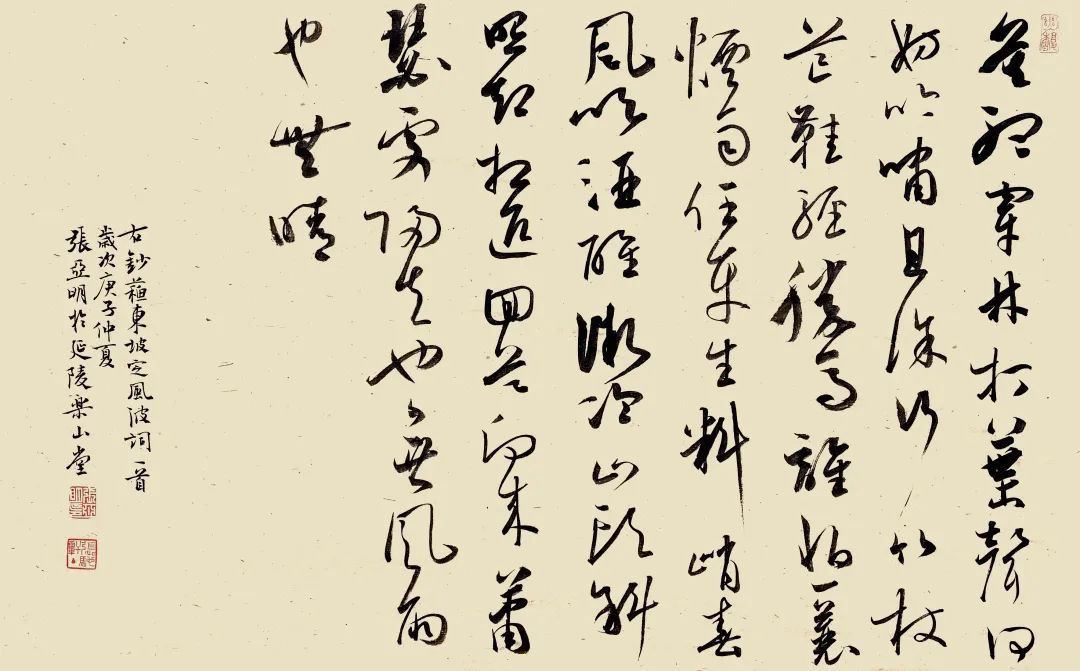 莫聽穿林打葉聲何
妨吟嘯且徐行竹杖
芒鞋輕勝馬誰怕一蓑
煙雨任平生料峭春
風吹酒醒微冷山頭斜
照却相迎回首向來蕭
瑟處歸去也無風雨
也無晴
右鈔蘇東坡定風波詞一首
歲次庚子仲夏
張亞明於延陵樂山堂